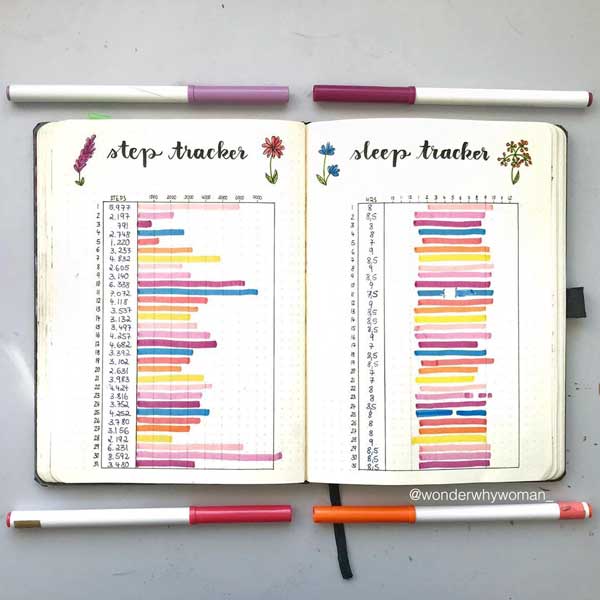 step tracker
STEPS 1000 2000 3000 4000 5000 6000 7000
1 5.977
2 2.197
3 791
4 2.748
5 1.220
6 3.233
7 4.832
8 2.605
9 3.140
10 6.338
11 7.072
12 4.118
13 3.537
14 3.132
15 3.497
16 4.257
17 4.682
18 3.392
19 3.102
20 2.631
21 3.983
22 4.424
23 3.816
24 3.752
25 4.252
26 3.780
27 3.156
28 2.192
29 6.231
30 8.592
31 3.430
sleep tracker
HRS
1 8
2 8,5
3 8
4 8
5 7
6 9
7 8,5
8 9
9 8,5
10 9
11 7,5
12 9
13 8,5
14 8,5
15 8,5
16 9
17 7
18 8,5
19 8,5
20 7
21 7
22 8
23 8
24 8,5
25 8
26 8
27 8
28 9
29 8,5
30 8,5
31 8,5
@wonderwhywoman_